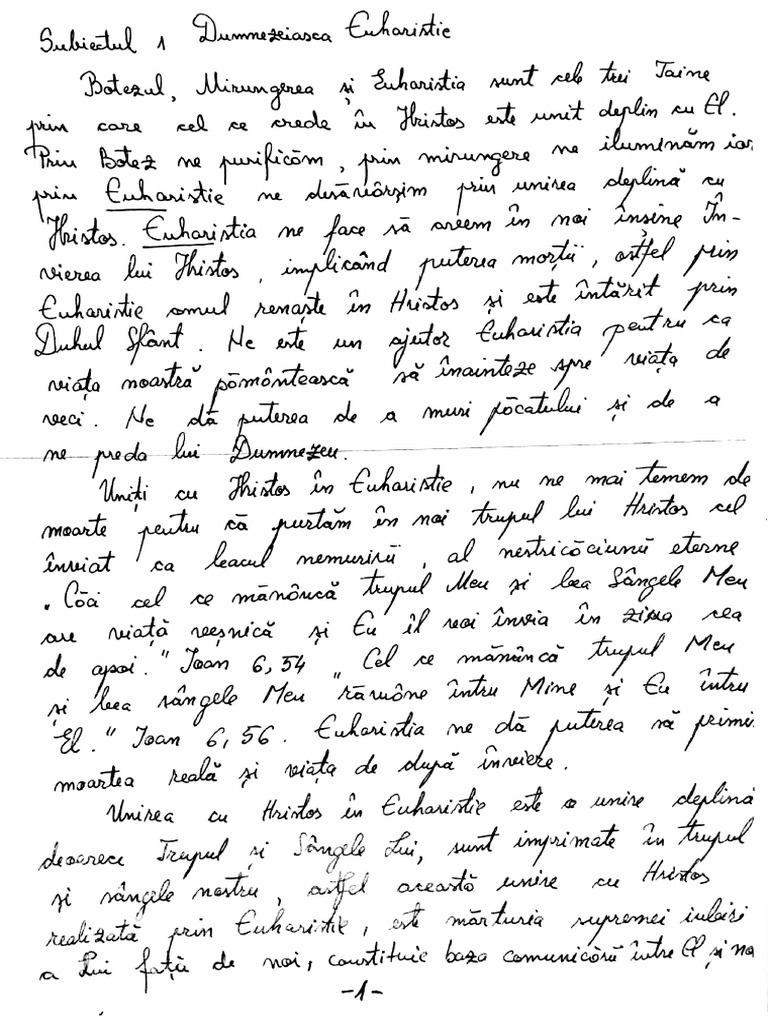 Subiectul 1 Dumnezeiasca Euharistie
Botezul, Mirungerea și Euharistia sunt cele trei Taine
prin care cel ce crede în Hristos este unit deplin cu El.
Prin Botez ne purificăm, prin mirungere ne iluminăm iar
prin Euharistie ne desăvârșim prin unirea deplină cu
Hristos. Euharistia ne face să avem în noi însine În-
vierea lui Hristos, implicând puterea morții, astfel prin
Euharistie omul renaște în Hristos și este întărit prin
Duhul Sfânt. Ne este un ajutor Euharistia pentru ca
viața noastră pământească să înainteze spre viața de
veci. Ne dă puterea de a muri păcatului și de a
ne preda lui Dumnezeu.
Uniți cu Hristos în Euharistie, nu ne mai temem de
moarte pentru că purtăm în noi trupul lui Hristos cel
înviat ca leacul nemuririi, al nestricăciunii eterne
„Căci cel ce mănâncă trupul Meu și bea Sângele Meu
are viață veșnică și Eu îl voi învia în ziua cea
de apoi." Ioan 6,54 „Cel ce mănâncă trupul Meu
și bea sângele Meu rămâne întru Mine și Eu întru
El." Ioan 6,56. Euharistia ne dă puterea să primi
moartea reală și viața de după înviere.
Unirea cu Hristos în Euharistie este o unire deplină
deoarece Trupul și Sângele Lui, sunt imprimate în trupul
și sângele nostru, astfel această unire cu Hristos
realizată prin Euharistie, este mărturia supremei iubiri
a Lui față de noi, constituie baza comunicării între El și no
-1-